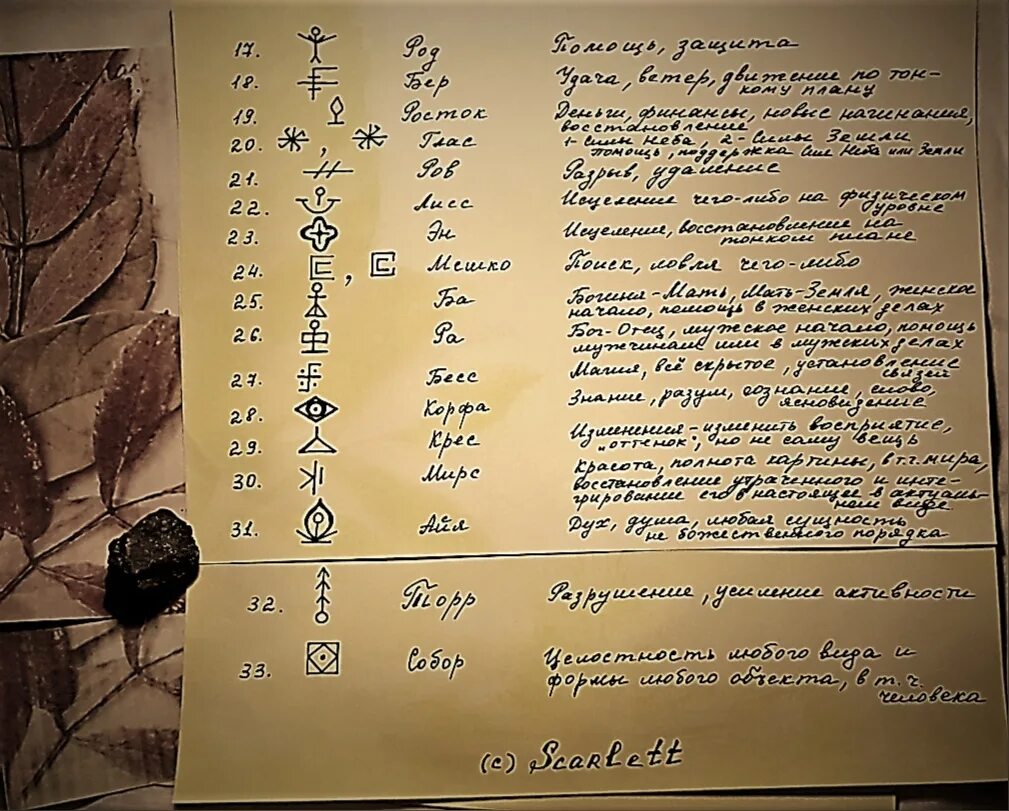 17. Род Помощь, защита
18. Бер Удача, ветер, движение по тон-
кому плану
19. Росток Деньги, финансы, новые начинания,
восстановление
20. , Глас 1-Силы Неба, 2-Силы Земли
помощь, поддержка Сил Неба или Земли
21. Ров Разрыв, удаление
22. Лисс Исцеление чего-либо на физическом
уровне
23. Эн Исцеление, восстановление на
тонком плане
24. , Мешко Поиск, ловля чего-либо
25. Ба Богиня-Мать, Мать-Земля, женское
начало, помощь в женских делах
26. Ра Бог-Отец, мужское начало, помощь
мужчинам или в мужских делах
27. Бесс Магия, всё скрытое, установление
связей
28. Корфа Знание, разум, сознание, слово,
ясновидение
29. Крес Изменения-изменить восприятие,
"оттенок", но не саму вещь
30. Мирс Красота, полнота картины, в т.ч. мира,
восстановление утраченного и инте-
грирование его в настоящее в актуаль-
ном виде
31. Айя Дух, душа, любая сущность
не божественного порядка
32. Тьорр Разрушение, усиление активности
33. Собор Целостность любого вида и
формы любого объекта, в т.ч.
человека
(c) Scarlett